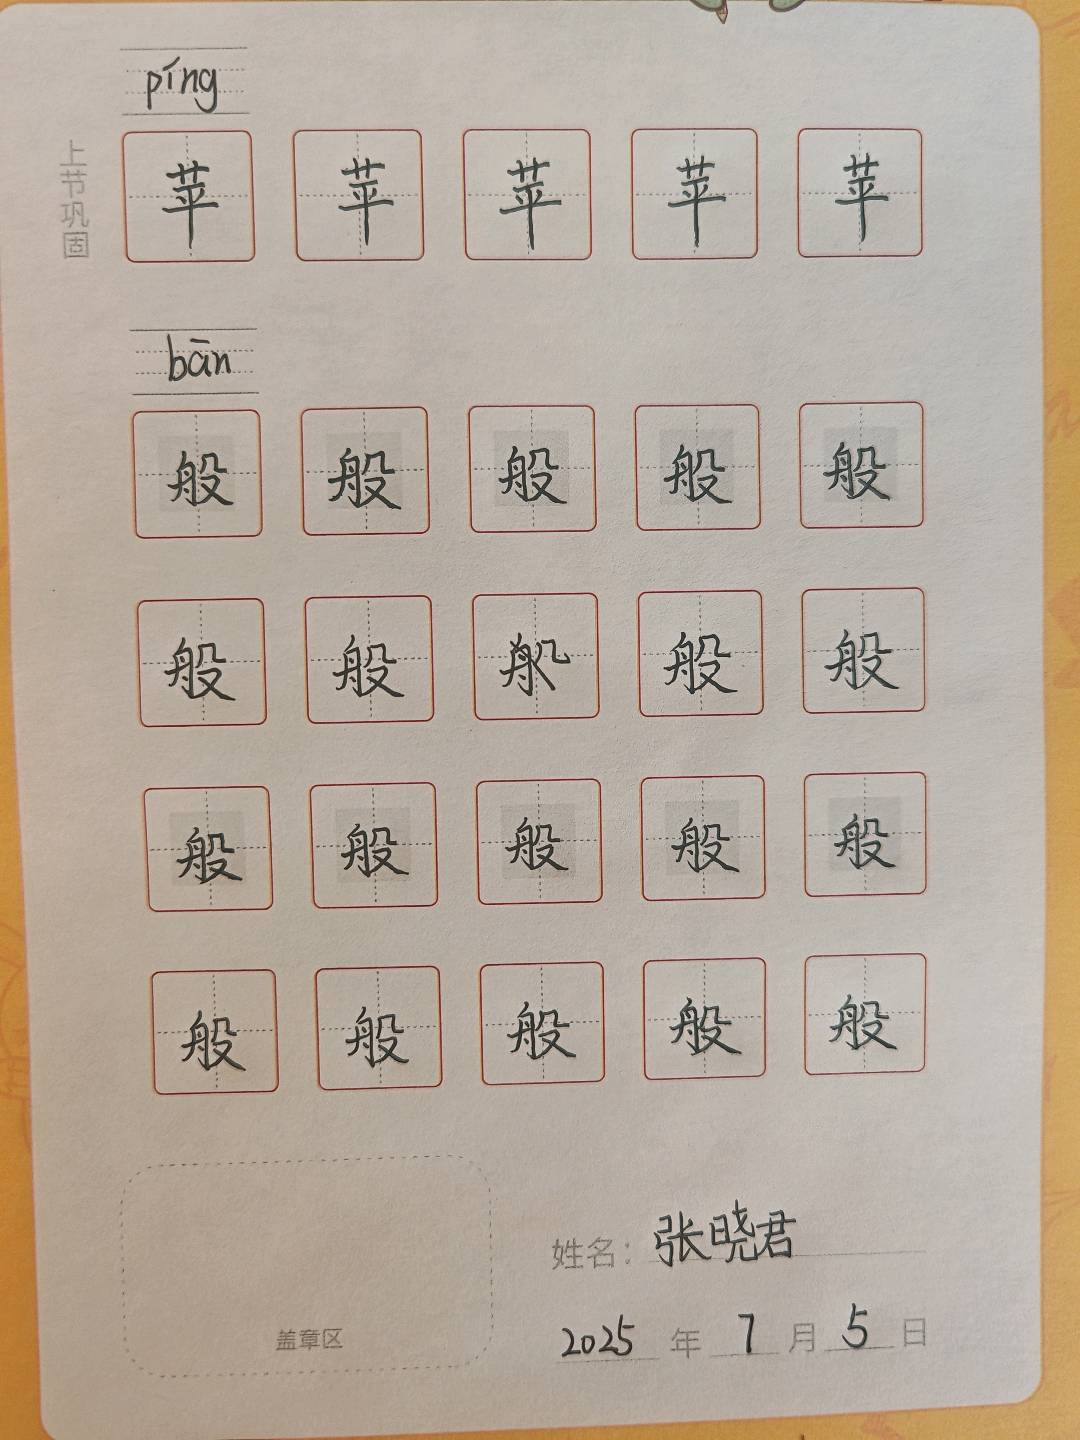 píng
上节巩固
苹 苹 苹 苹 苹
bān
般 般 般 般 般
般 般 般 般
般 般 般 般 般
般 般 般 般 般
姓名：张晓君
盖章区
2025 年 7 月 5 日